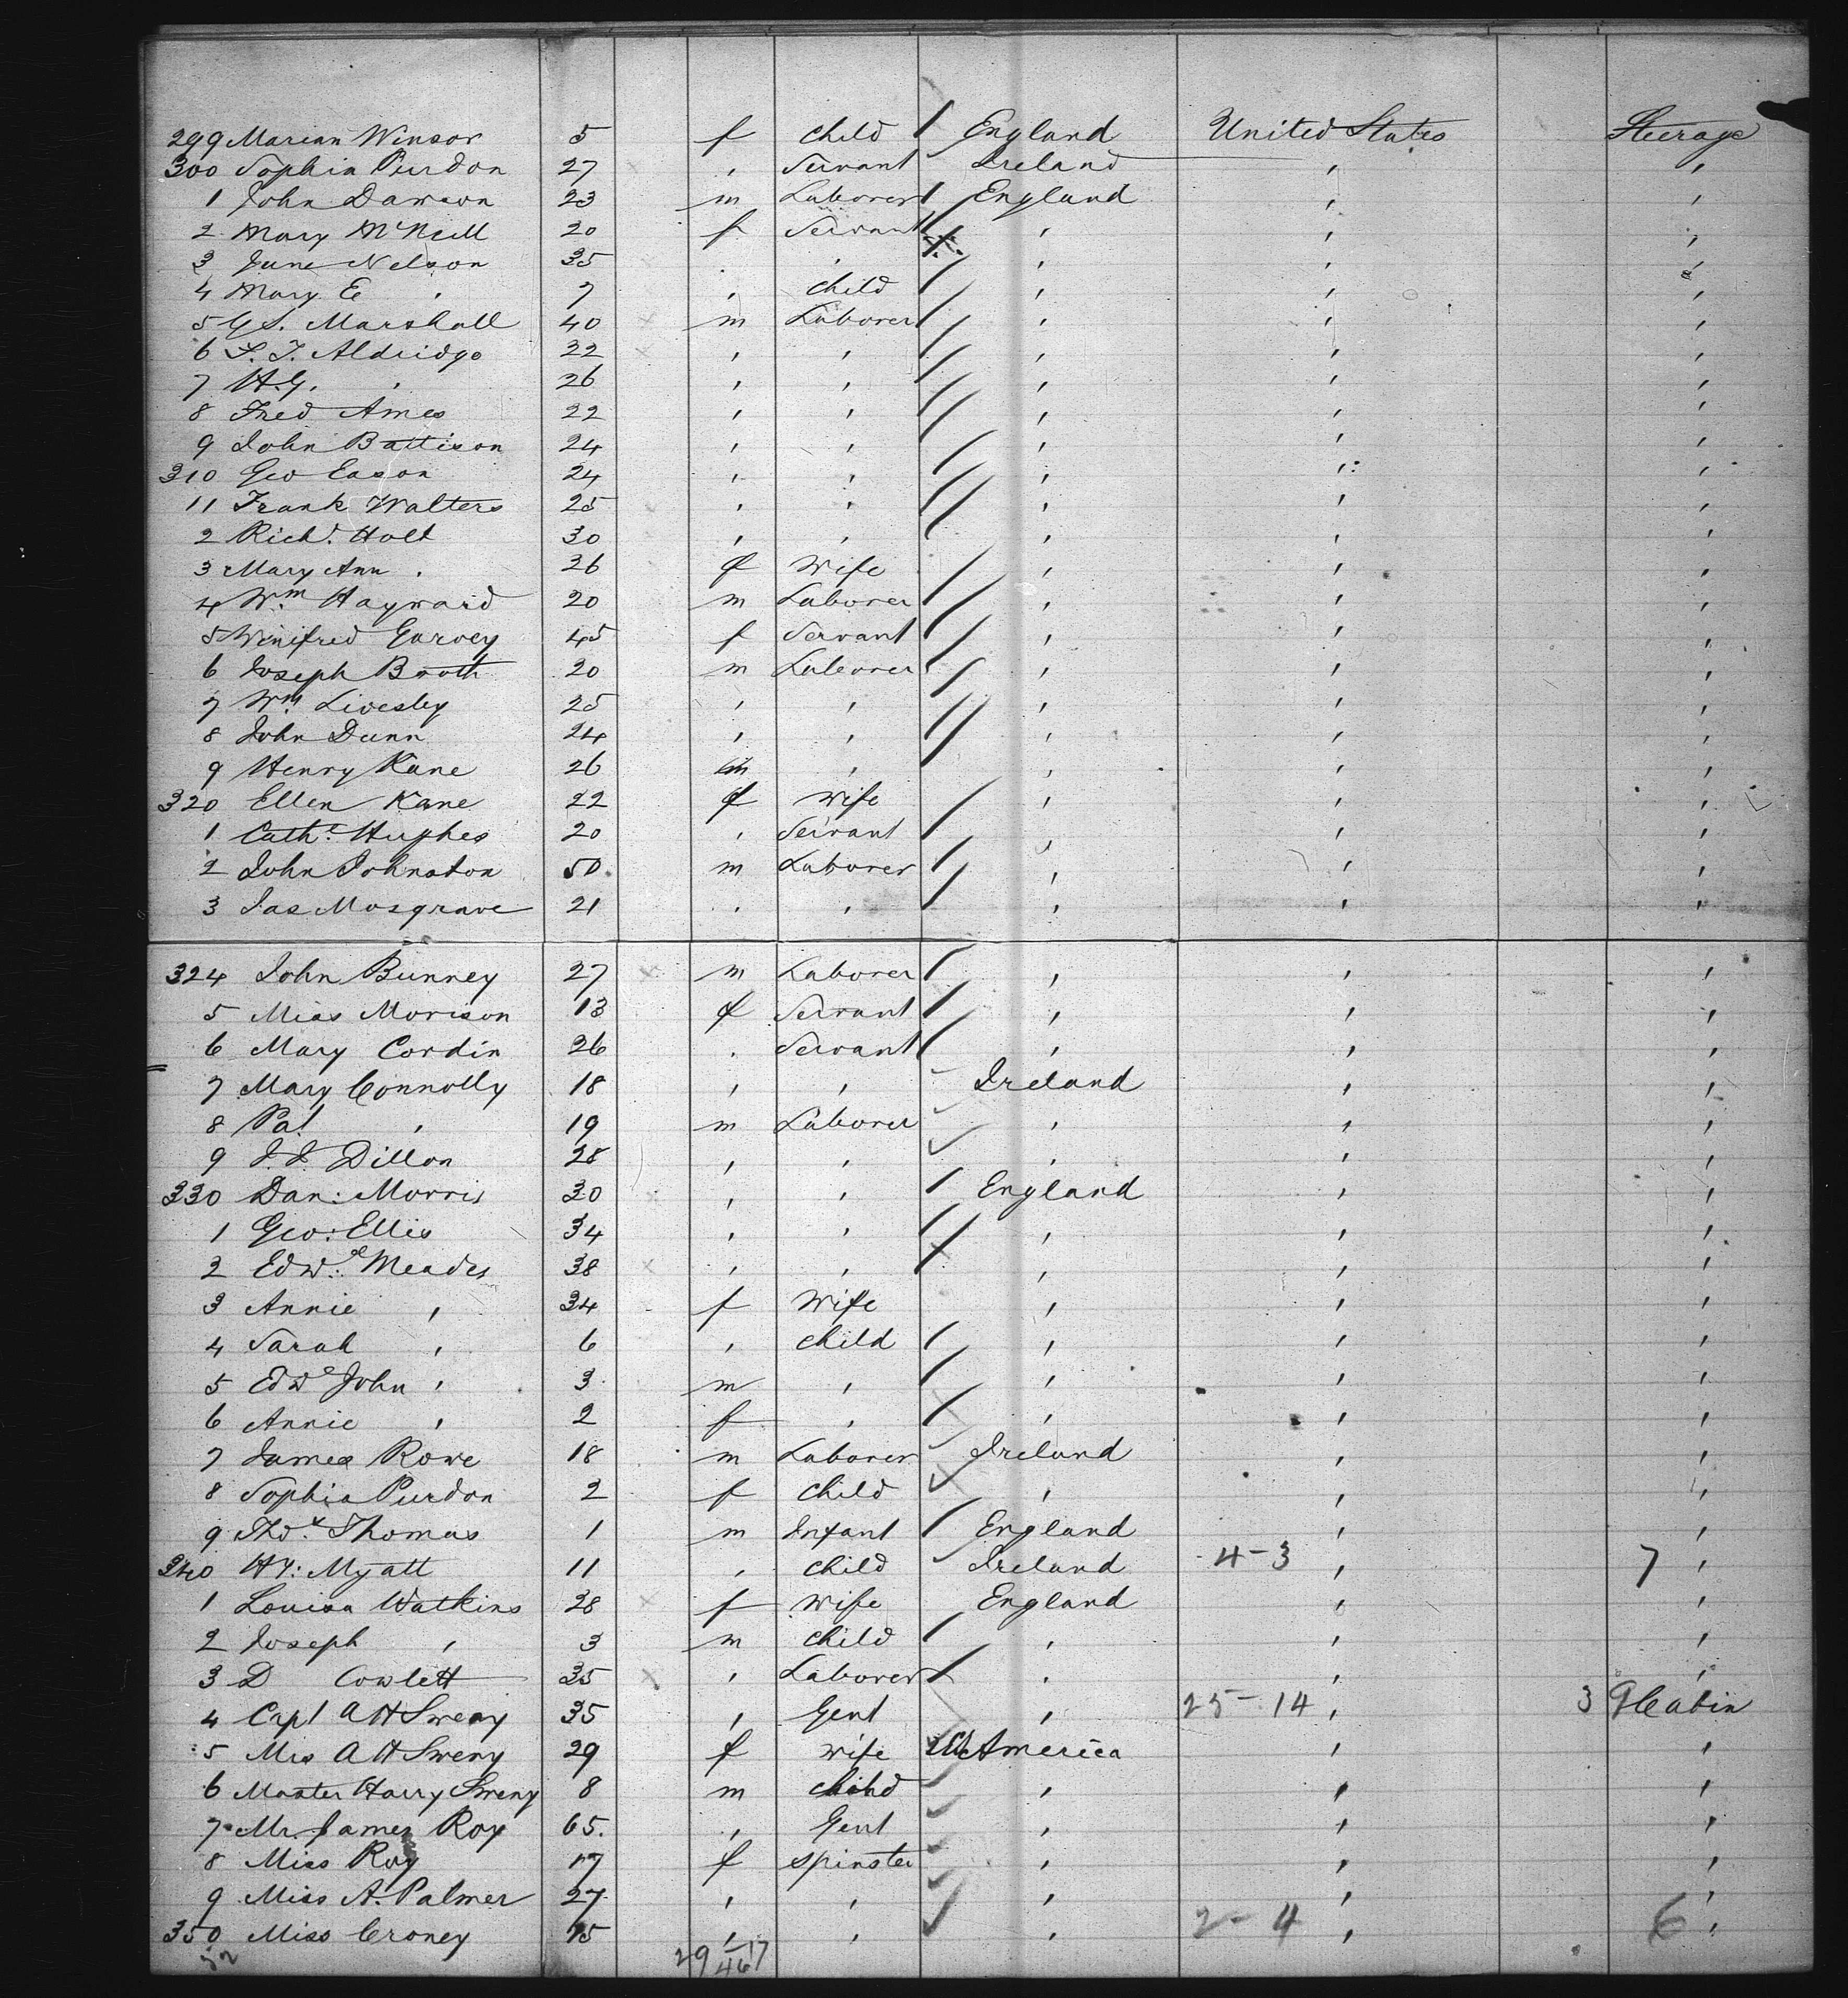 299 Marian Winsor 5 f Child England United States Steerage
300 Sophia Purdon 27 , Servant Ireland , ,
1 John Dawson 23 m Laborer England , ,
2 Mary McNeill 20 f Servant , , ,
3 Jane Nelson 35 , , , , ,
4 Mary E , 7 , Child , , ,
5 G.S. Marshall 40 m Laborer , , ,
6 S. T. Aldridge 22 , , , , ,
7 H.G. , 26 , , , , ,
8 Fred Ames 22 , , , , ,
9 John Battison 24 , , , , ,
310 Geo Eason 24 , , , , ,
11 Frank Walters 25 , , , , ,
2 Richd. Holt 30 , , , , ,
3 Mary Ann , 26 f Wife , , ,
4 Wm. Hayward 20 m Laborer , , ,
5 Winifred Garvey 45 f Servant , , ,
6 Joseph Booth 20 m Laborer , , ,
7 Wm. Livesley 25 , , , , ,
8 John Dunn 24 , , , , ,
9 Henry Kane 26 m , , , ,
320 Ellen Kane 22 f Wife , , ,
1 Cathe. Hughes 20 , Servant , , ,
2 John Johnston 50 m Laborer , , ,
3 Jas Mosgrave 21 , , , , ,
324 John Bunney 27 m Laborer , , ,
5 Miss Morison 13 f Servant , , ,
6 Mary Cordin 26 , Servant , , ,
7 Mary Connolly 18 , , Ireland , ,
8 Pat , 19 m Laborer , , ,
9 J. J. Dillon 28 , , , , ,
330 Dan: Morris 30 , , England , ,
1 Geo: Ellis 34 , , , , ,
2 Edwd: Meades 38 , , , , ,
3 Annie , 34 f Wife , , ,
4 Sarah , 6 , Child , , ,
5 Edwd John , 3 m , , , ,
6 Annie , 2 f , , , ,
7 James Rowe 18 m Laborer Ireland , ,
8 Sophia Purdon 2 f Child , , ,
9 Thos. Thomas 1 m Infant England , ,
340 Hy: Myatt 11 , Child Ireland 4-3 , 7 ,
1 Louisa Watkins 28 f Wife England , ,
2 Joseph , 3 m Child , , ,
3 D Cowlett 35 , Laborer , , ,
4 Capt A H Sweny 35 , Gent , 25-14 , 39 Cabin
5 Mrs A H Sweny 29 f Wife America , ,
6 Master Harry Sweny 8 m Child , , ,
7 Mr. James Roy 65. , Gent , , ,
8 Miss Roy 17 f Spinster , , ,
9 Miss A. Palmer 27 , , , , ,
350 Miss Croney 15 , , , 2-4 , 6 ,
52 29-17
46